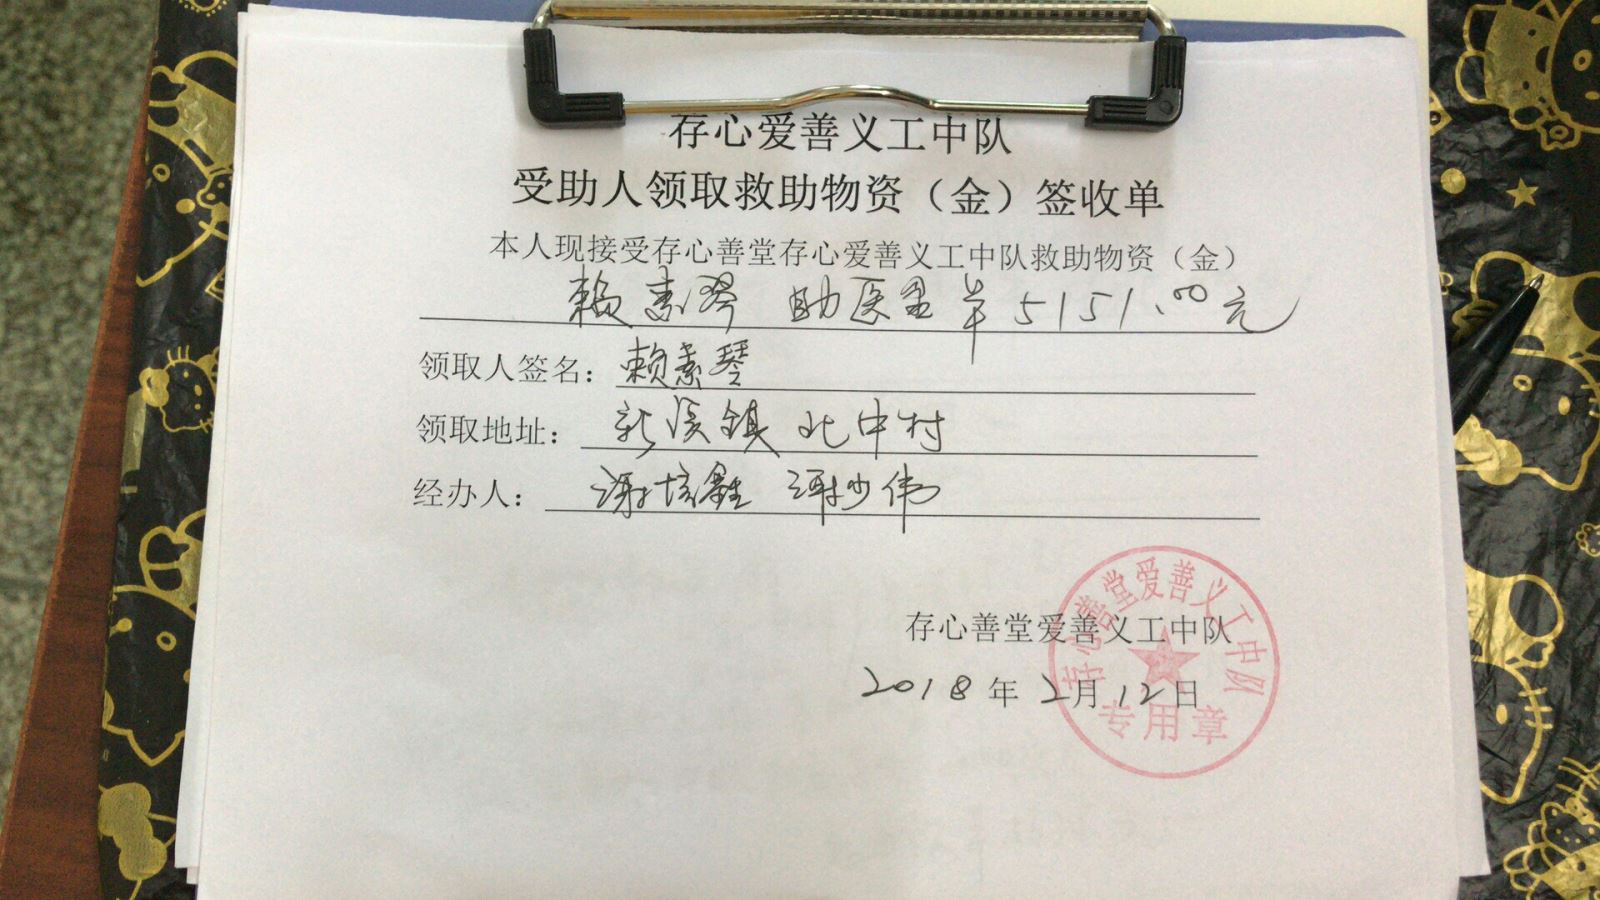 存心爱善义工中队
受助人领取救助物资（金）签收单
本人现接受存心善堂存心爱善义工中队救助物资（金）
赖素琴 助医金 ¥5151.00元
领取人签名：赖素琴
领取地址：新溪镇北中村
经办人：谢培 谢少伟
存心善堂爱善义工中队
2018年2月12日
存心善堂爱善义工中队
专用章